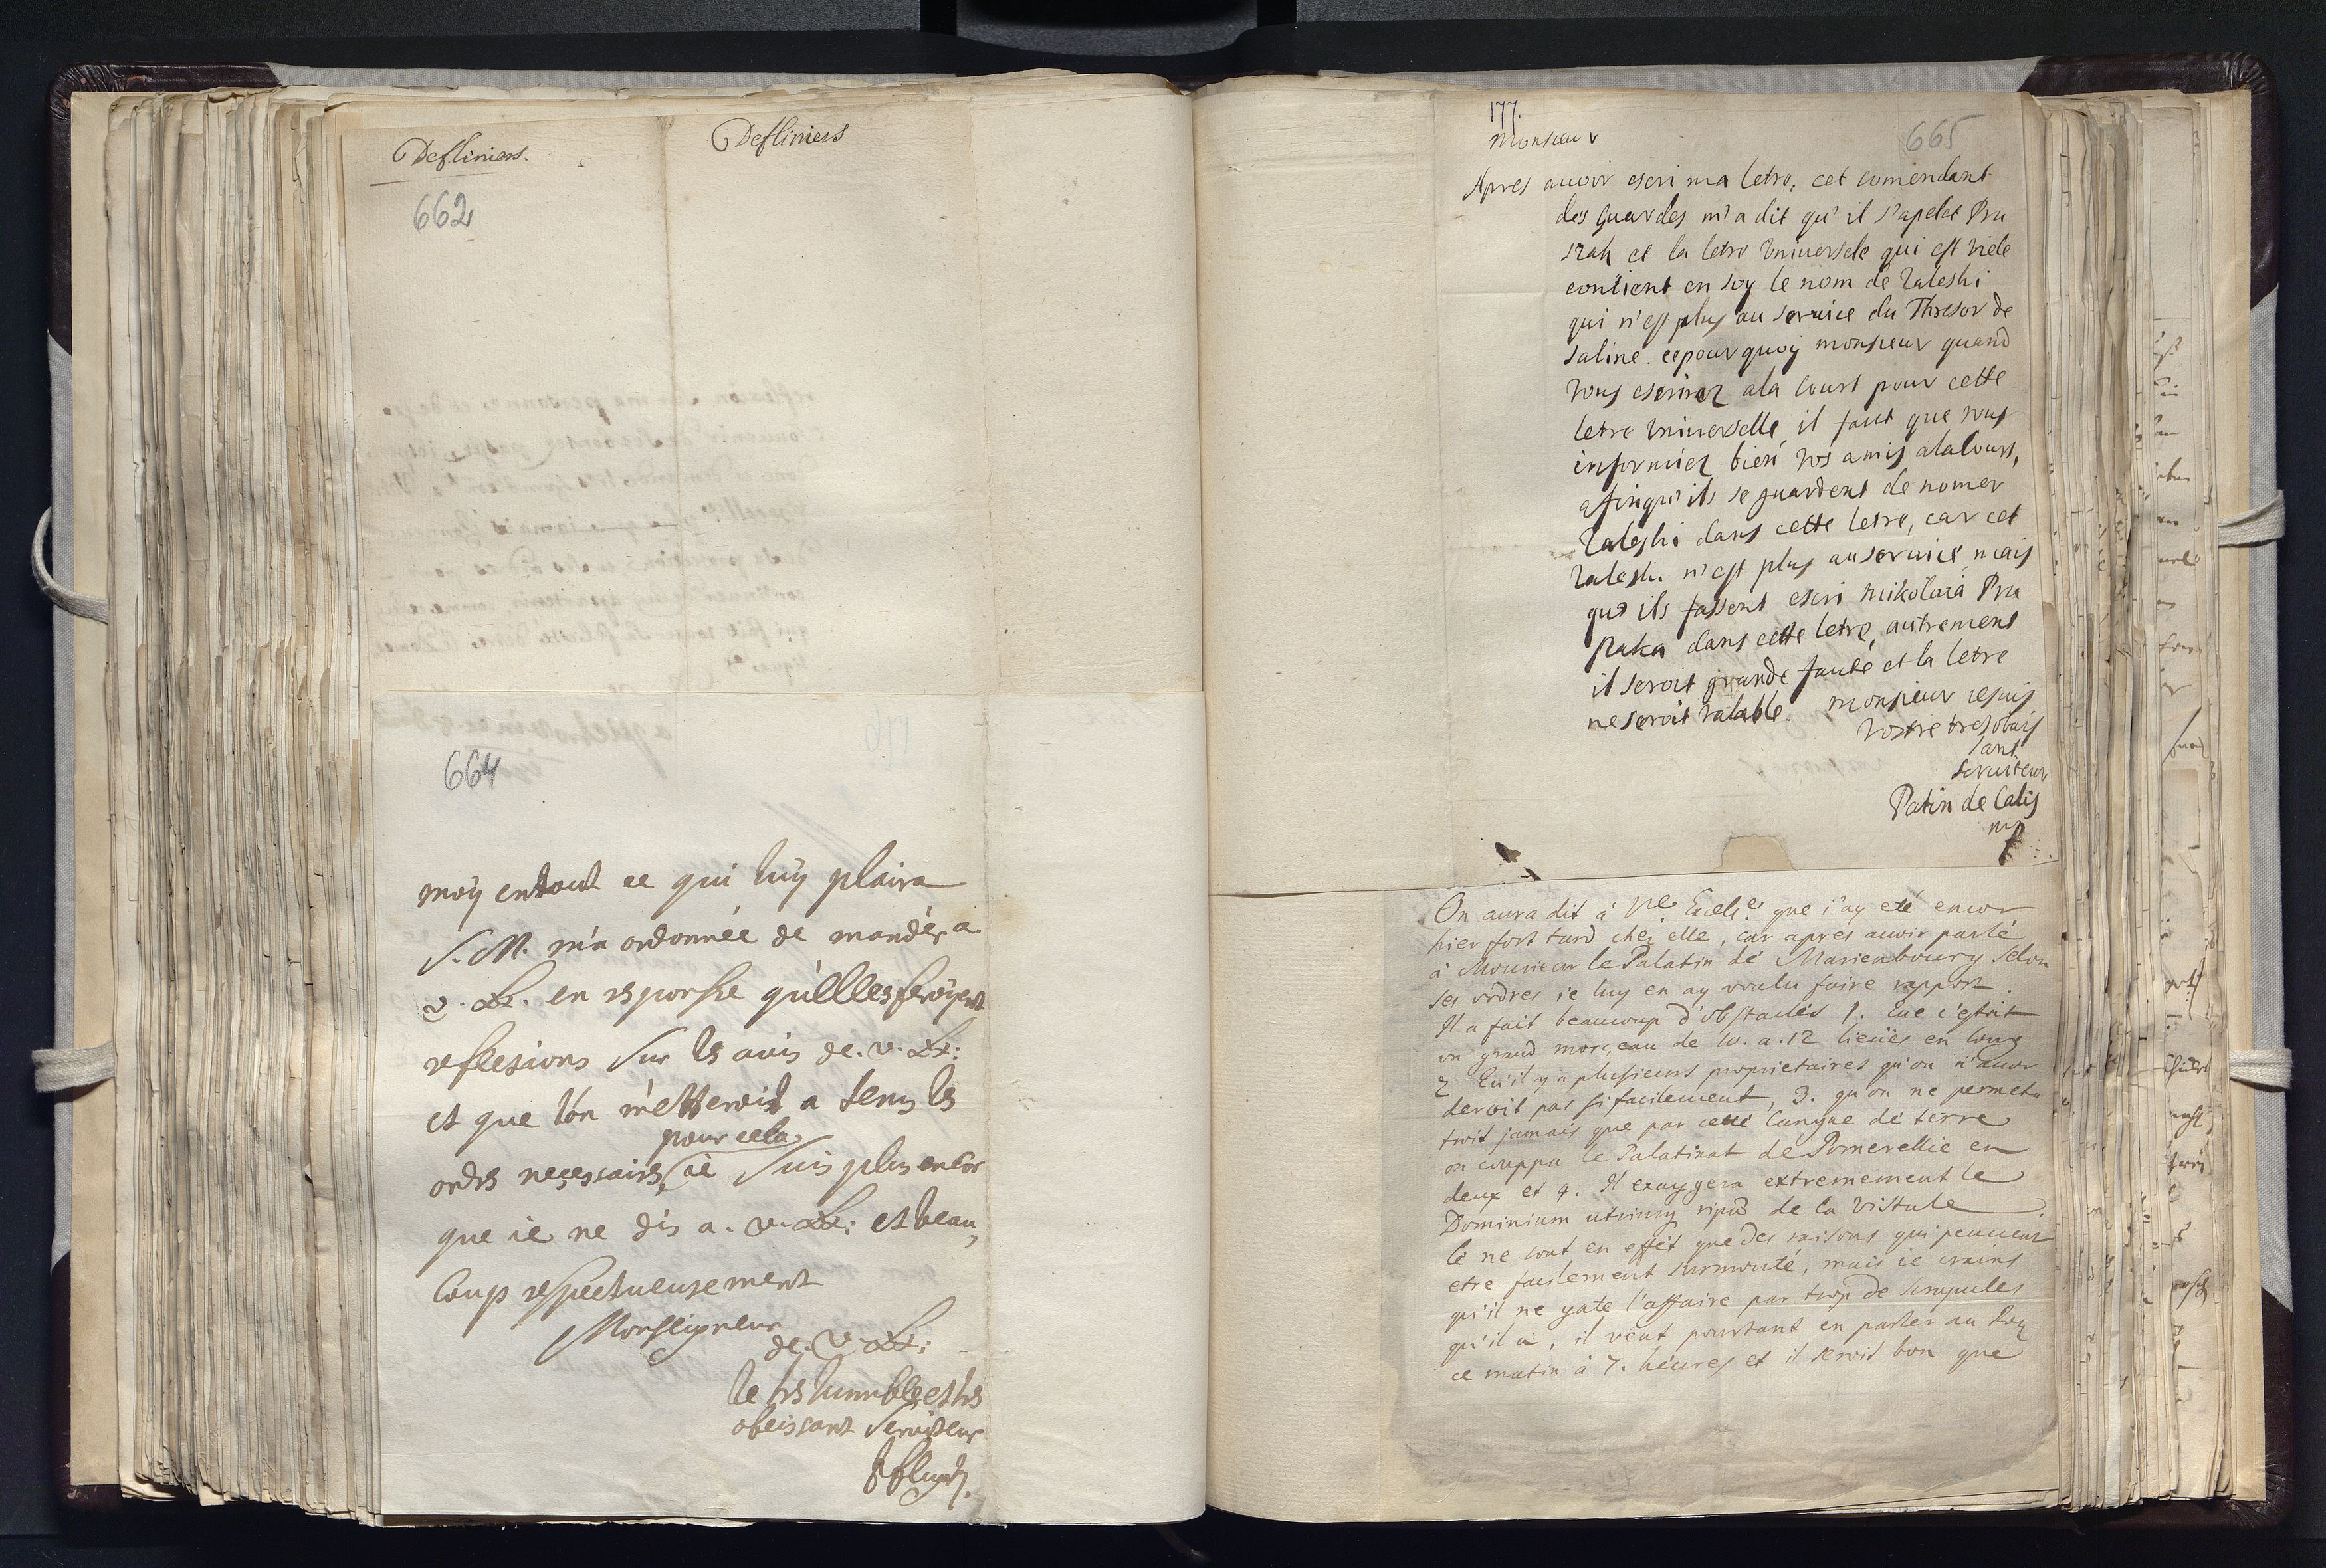 Desliniers.
Desliniers
662
664
moÿ entout ce qui luÿ plaira
S. M. m'a ordonnée de mander a.
v. Ex. en responce qu'elles feroÿent
reflexions sur les auis de. v. Ex:
et que l'on metteroit a tems les
pour cela
ordrs necessairs, ie suis plus encor
que ie ne dis a. v. Ex: et beau,
coup respectueusement
Monseigneur
de. v. Ex:
le trs humble et trs
obeissant seruiteur
177.
665
Monsieur
Apres auoir escri ma letre, cet comendant
des Guardes m'a dit qu'il s'apelet Pru
szak et la letre Vniuersele qui est viele
contient en soy le nom de Zaleski
qui n'est plus au seruice du Thresor de
saline. cepourquoÿ monsieur quand
vous escriuez ala Court pour cette
letre Vniuerselle il faut que vous
informiez bien vos amis alaCourt,
affinqu'ils se guardent de nomer
Zaleski dans cette letre, car cet
Zaleski n'est plus auseruice mais
que ils fassent escri Mikolaia Pru
szaka dans cette letre, autrement
il seroit grande faute et la letre
ne seroit valable. Monsieur iesuis
vostre tresobeis
sant
seruiteur
Patin de Calis
mp
On aura dit à Vre Excell.e que j'ay eté encor
hier fort tard chez elle, car apres auoir parlé
à Monsieur le Palatin de Marienbourg selon
ses ordres ie luy en ay voulu faire rapport.
Il a fait beaucoup d'obstacles 1. que c'estoit
un grand morceau de 10. a. 12 lieües en long
2 Qu'il y a plusieurs proprietaires qu'on n'accor
deroit pas si facilement, 3. qu'on ne permet
troit jamais que par cette langue de terre
on couppa le Palatinat de Pomerellie en
deux et 4. Il exaggera extremement le
Dominium utriusq ripae de la Vistule
Ce ne sont en effet que des raisons qui peuuent
etre facilement surmonté, mais ie crains
qu'il ne gate l'affaire par trop de scrupules
qu'il a, il veut pourtant en parler au Roy
ce matin à 7. heures et il seroit bon que